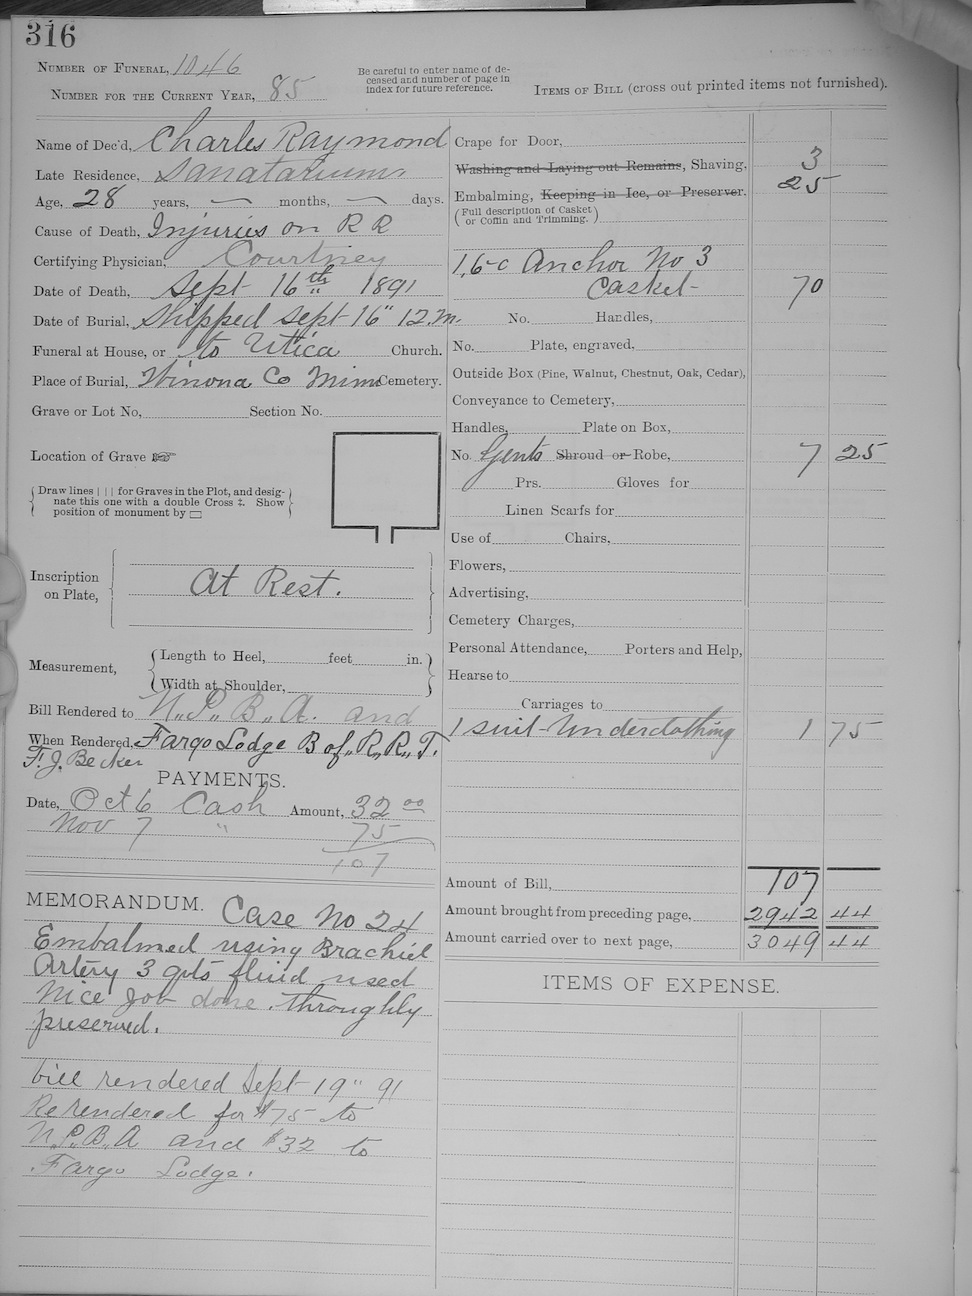 316
Number of Funeral, 1046
Number for the Current Year, 85
Be careful to enter name of de-
ceased and number of page in
index for future reference.
Items of Bill (cross out printed items not furnished).
Name of Dec'd, Charles Raymond
Late Residence, Sanatarium
Age, 28 years, — months, — days.
Cause of Death, Injuries on R R
Certifying Physician, Courtney
Date of Death, Sept 16th 1891
Date of Burial, Shipped Sept 16" 12.M.
Funeral at House, or to Utica Church.
Place of Burial, Winona Co Minn Cemetery.
Grave or Lot No, Section No.
Location of Grave ☞
(Draw lines | | | for Graves in the Plot, and desig-
nate this one with a double Cross ‡. Show
position of monument by ▭)
Inscription
on Plate,
At Rest.
Measurement,
Length to Heel, feet in.
Width at Shoulder,
Bill Rendered to N.P.B.A. and
When Rendered, Fargo Lodge B of R.R.T.
F. J. Becker
PAYMENTS.
Date, Oct 6 Cash Amount, 32 00
Nov 7 " 75
107
MEMORANDUM. Case No 24
Embalmed using Brachiel
Artery 3 qts fluid used
Nice job done. throughly
preserved.
bill rendered Sept 19" 91
Rerendered for $75 to
N.P.B.A and $32 to
Fargo Lodge.
Crape for Door,
Washing and Laying out Remains, Shaving, 3
Embalming, Keeping in Ice, or Preserver. 25
(Full description of Casket
or Coffin and Trimming.)
Anchor No 3
Casket 70
No. Handles,
No. Plate, engraved,
Outside Box (Pine, Walnut, Chestnut, Oak, Cedar),
Conveyance to Cemetery,
Handles, Plate on Box,
No. Gents Shroud or Robe, 7 25
Prs. Gloves for
Linen Scarfs for
Use of Chairs,
Flowers,
Advertising,
Cemetery Charges,
Personal Attendance, Porters and Help,
Hearse to
Carriages to
1 suit Underclothing 1 75
Amount of Bill, 107
Amount brought from preceding page, 2942 44
Amount carried over to next page, 3049 44
ITEMS OF EXPENSE.